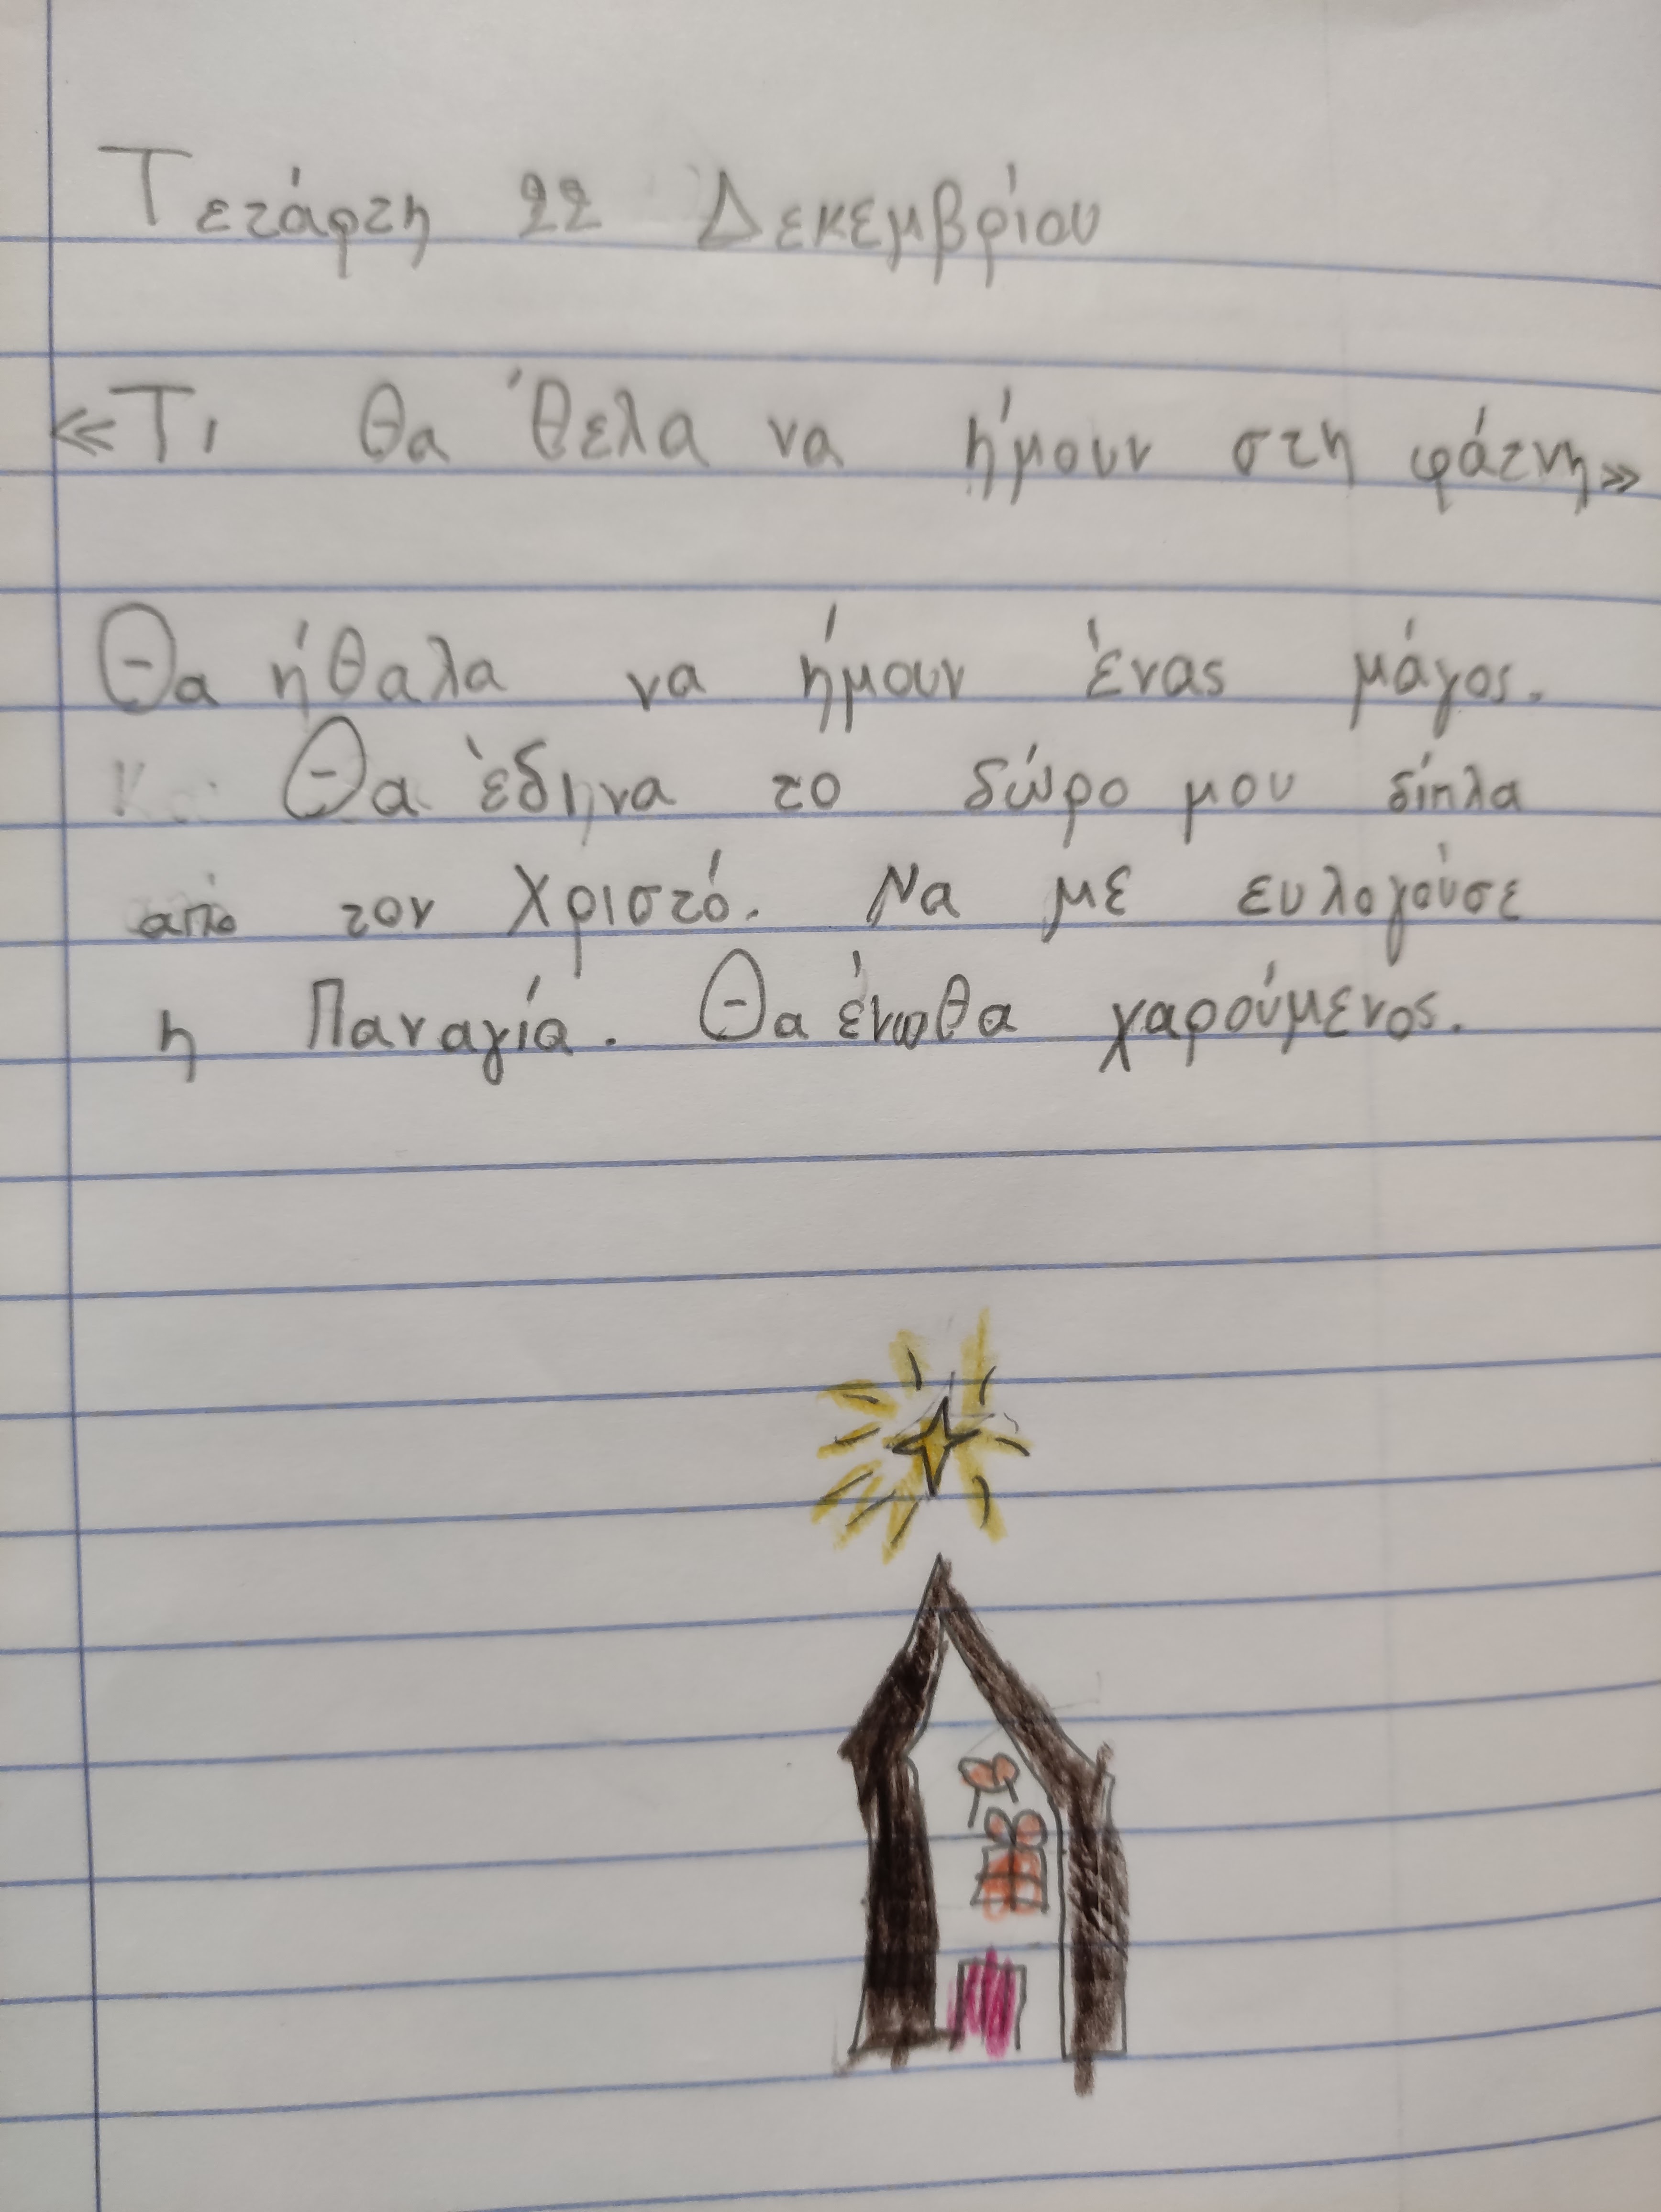 Τετάρτη 22 Δεκεμβρίου
«Τι θα 'θελα να ήμουν στη φάτνη»
Θα ήθαλα να ήμουν ένας μάγος.
Θα έδινα το δώρο μου δίπλα
από τον Χριστό. Να με ευλογούσε
η Παναγία. Θα ένιωθα χαρούμενος.